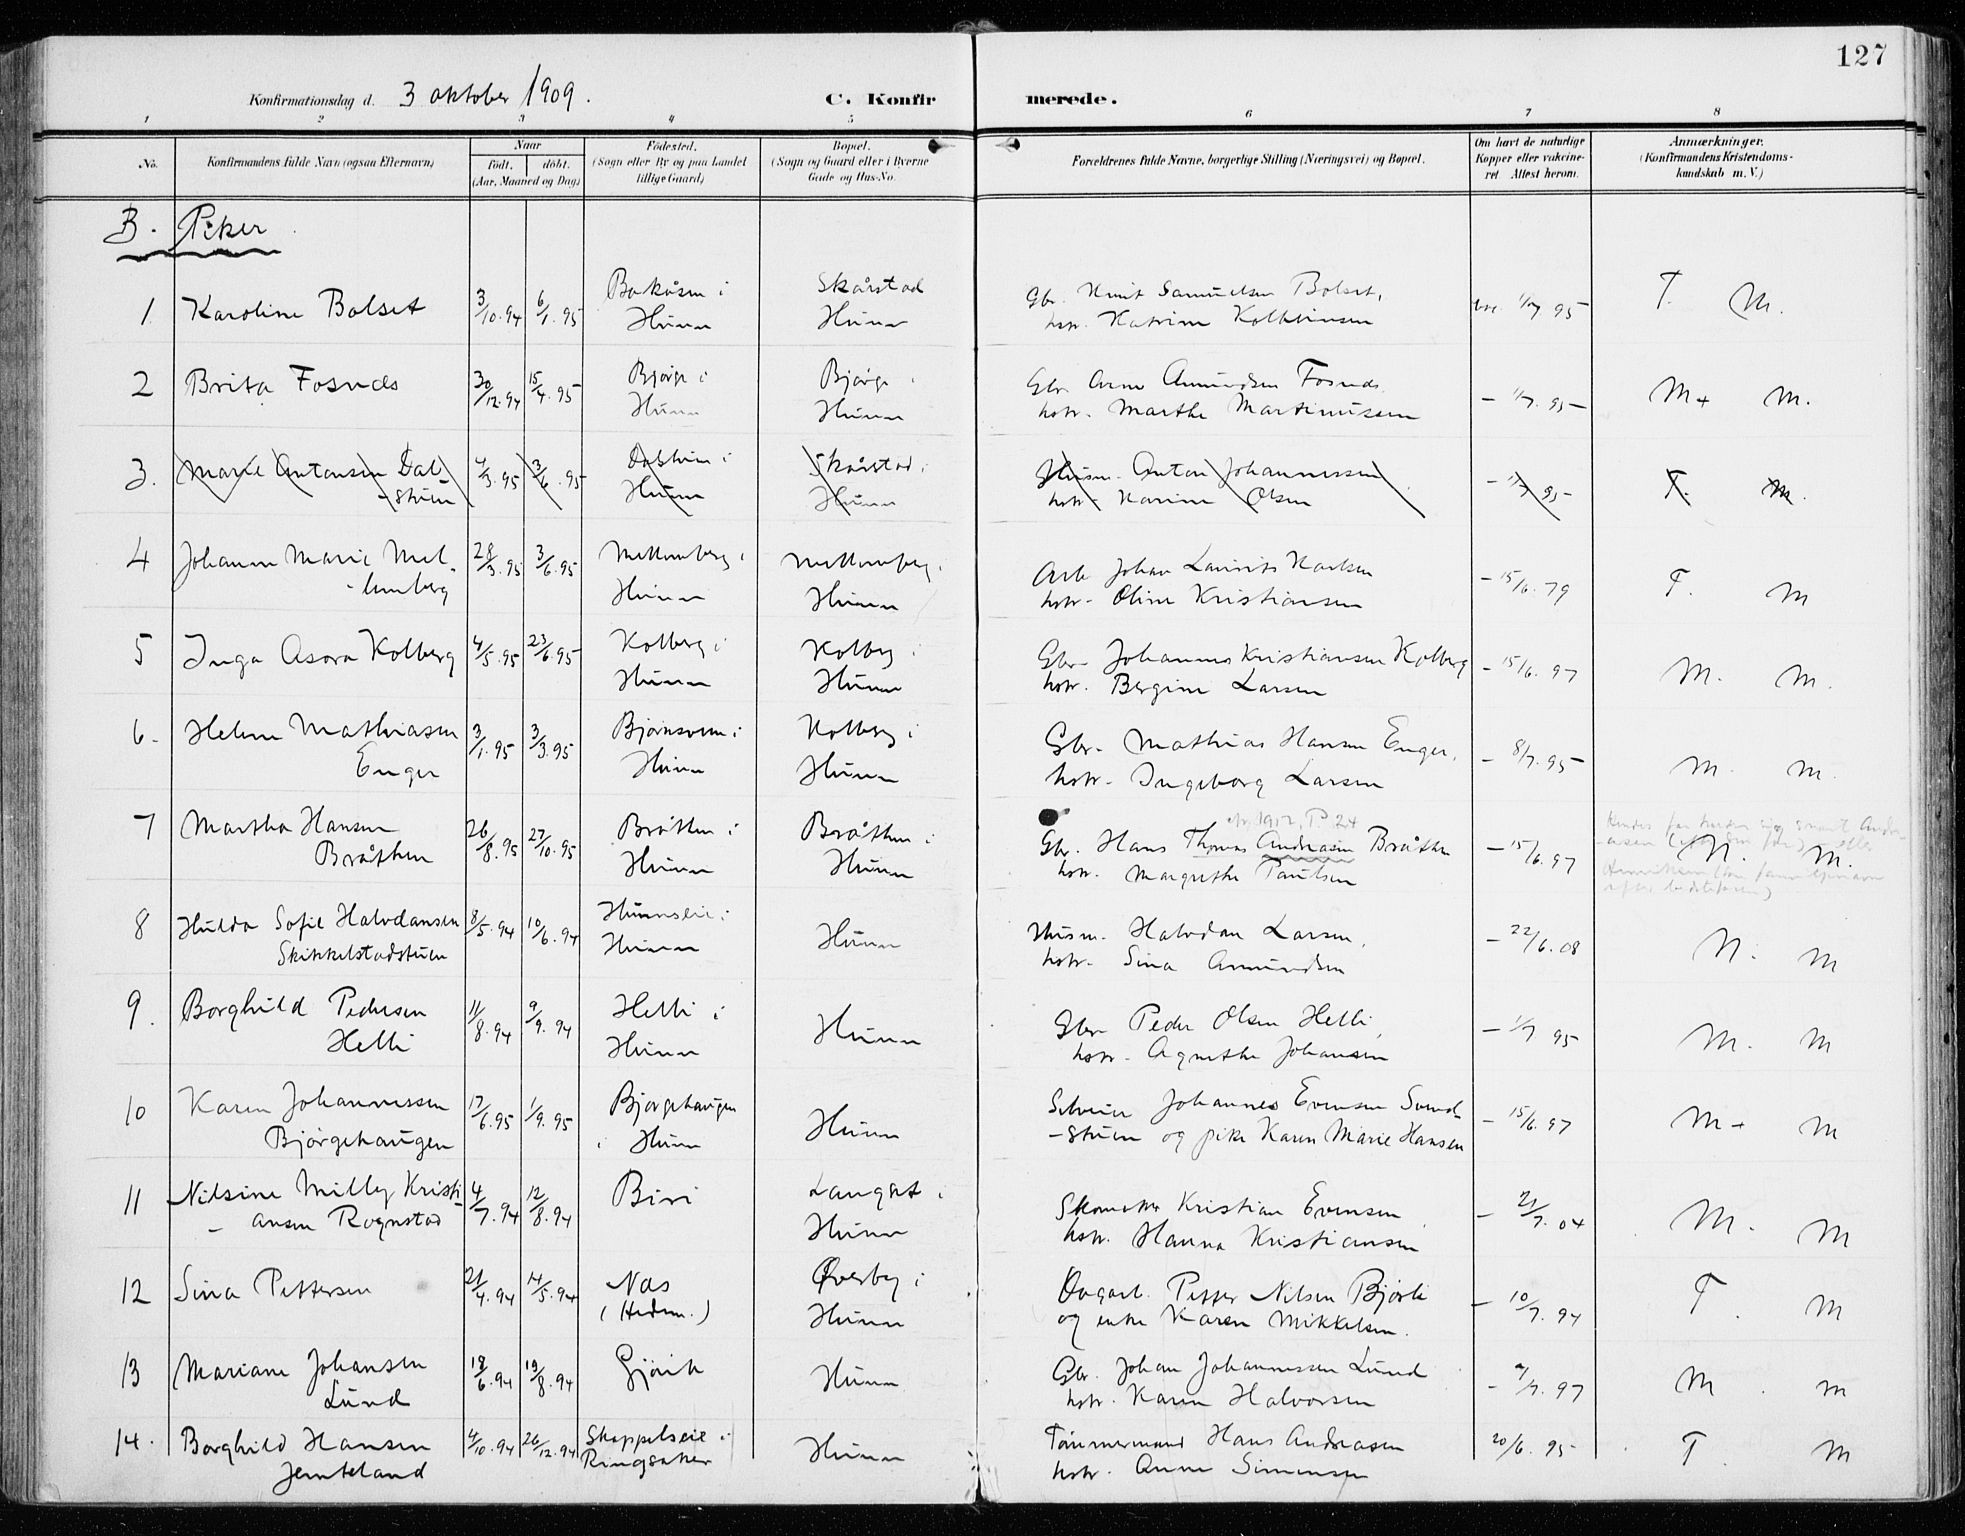 127
Konfirmationsdag d. 3 oktober 1909.
C. Konfirmerede.
1 2 3 4 5 6 7 8
No.
Konfirmandens fulde Navn (ogsaa Efternavn)
Naar
født. døbt.
(Aar, Maaned og Dag)
Fødested.
(Sogn eller By og paa Landet
tillige Gaard)
Bopæl.
(Sogn og Gaard eller i Byerne
Gade og Hus-No.
Forældrenes fulde Navne, borgerlige Stilling (Næringsvei) og Bopæl.
Om havt de naturlige
Kopper eller vakcine-
ret Attest herom.
Anmærkninger.
(Konfirmandens Kristendoms-
kundskab m. V.)
B. Piker
1 Karoline Bolset 3/10.94 6/1.95 i Skårstad Gbr. Knut Samuelsen Bolset, 95 T. M.
Hunn Hunn hstr. Katrine
2 Brita Fosnæs 30/12.94 15/4.95 Bjørge i Bjørge i Gbr. Arne Amundsen Fosnæs
Hunn Hunn hstr. Marthe Martinussen - 1/7.95 - M+ M.
3. Marie Antonsen Dal 4/3.95 3/6.95 i Skårstad i Husm. Anton Johannessen - 1/7 95 - T. M.
-stuen Hunn Hunn hstr. Karine Olsen
4 Johanne Marie Mel- 28/3.95 3/6.95 Mellumberg i Mellumberg i Arb. Johan Laurits Karlsen - 15/6.79 T. M
-lumberg Hunn Hunn hstr. Oline Kristiansen
5 Inga Asora Kolberg 4/5.95 23/6.95 Kolberg i Kolberg i Gbr. Johannes Kristiansen Kolberg - 15/6.97 M. M.
Hunn Hunn hstr. Bergine Larsen
6. Helene Mathiasen 3/1.95 3/3.95 i Kolberg i Gbr. Mathias Hansen Enger, - 8/7.95 M. M.
Enger Hunn Hunn hstr. Ingeborg Larsen
7 Martha Hansen 26/8.95 27/10.95 Bråthen i Bråthen i Gbr. Hans Thomas Andreasen Bråthen - 15/6.97 M. M.
Bråthen Hunn Hunn hstr. Margrethe Paulsen
8 Hulda Sofie Halvdansen 8/5.94 10/6.94 Hunnseie i Hunn Husm. Halvdan Larsen, - 22/6.08 N. M
Skikkelstadstuen Hunn hstr. Sina Amundsen
9. Borghild Pedersen 11/8.94 9/9.94 Helli i Hunn Gbr Peder Olsen Helli, - 1/7 95 M. M
Helli Hunn hstr. Agnethe Johansen
10 Karen Johannessen 17/6.95 1/9.95 Bjørgehaugen Hunn Johannes Evensen - 15/6.97 M+ M
Bjørgehaugen i Hunn -stuen og pike Karen Marie Hansen
11 Nilsine Milly Kristi- 4/7.94 12/8.94 Biri i Skomaker Kristian Evensen - 21/7.04 M. M
- ansen Rognstad Hunn hstr. Hanna Kristiansen
12 Sina Pettersen 21/4.94 14/5.94 Næs Øverby i Dagarb. Petter Nilsen Bjørli - 10/7.94 T. M
(Hedm.) Hunn og enke Karen Mikkelsen.
13 Mariane Johansen 18/6.94 19/8.94 Gjøvik Hunn Gbr. Johan Johannessen Lund 97 M. M
Lund hstr. Karen Halvorsen
14. Borghild Hansen 4/10.94 26/12.94 i Hunn Tømmermand Hans Andreasen 20/6.95 T. M
Jemteland Ringsaker hstr. Anne Simensen